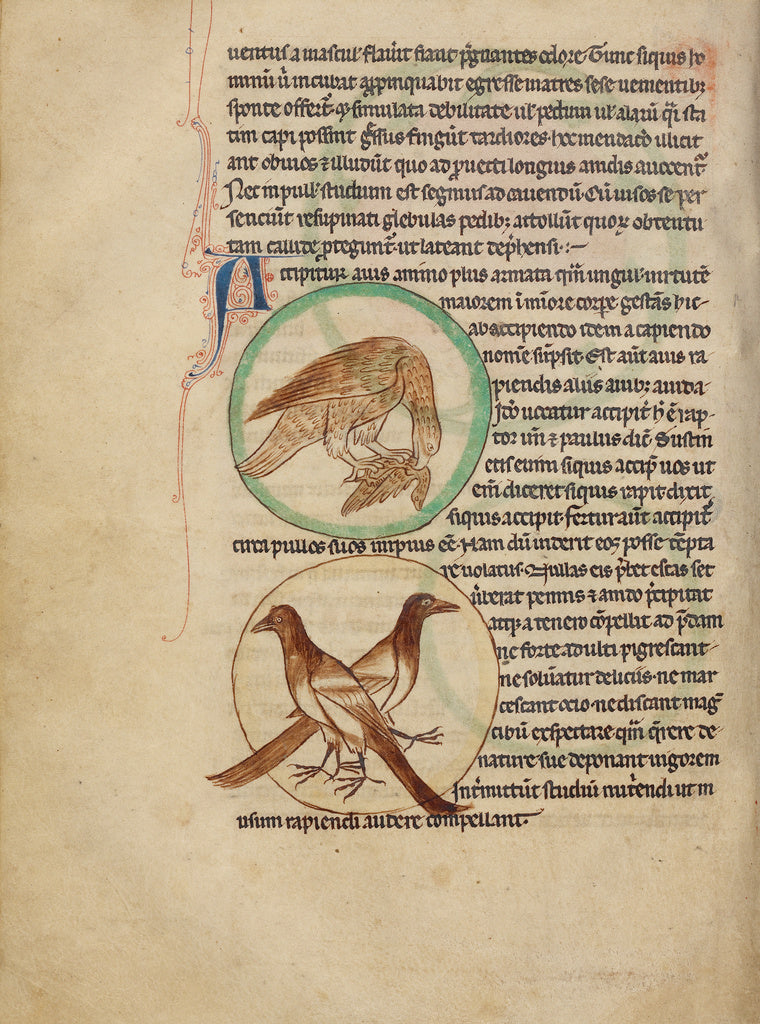 uentus a mascul' flau'it fiant p̃gnantes odore. Tunc siquis ho
minũ ũ incubat app̃pinquabit egresse matres sese uenientib;
sponte offert̃. ⁊ simulata debilitate ul' pedum ul' alarũ q̃i sta
tim capi possint g̃ssus fingũt tardiores. hoc mendacio illicit
ant obuios ⁊ illudũt quo ad ꝓuecti longius a nidis auocent̃
Nec in pull' studium est segnius ad cauendũ. Cũ uisos se per
senciũt resupinati glebulas pedib; attollũt quoꝝ obtentu
tam callide ꝓtegunt̃. ut lateant dep̃hensi.
Accipitur auis animo plus armata qm̃ ungul' uirtutẽ
maiorem ĩ mĩore corꝑe gestãs hic
ab accipiendo idem a capiendo
nom̃e sũpsit. Est aũt auis ra
piendis aliis auib; auida.
Ido uocatur accipit̃ h̃ ẽ rap
tor un̄ ⁊ paulus dic̃. Sustin
etis enim siquis accip̃ uos ut
em̃ diceret siquis rapit. dixit
siquis accipit. fertur aũt accipit̃
circa pullos suos inpius eẽ. Nam dũ uiderit eos posse tẽpta
re uolatus. Nullas eis p̃bet escas set
ũberat pennis ⁊ a nido p̃cipitat
atq; a tenero cõpellit ad p̃dam
ne forte adulti pigrescant.
ne soluatur deliciis. ne mar
cescant ocio. ne discant mag̃
cibũ exspectare qm̃ q̃rere. ne
nature sue deponant uigorem
Int̃mittũt studiũ nut̃endi ut in
usum rapiendi audere compellant.